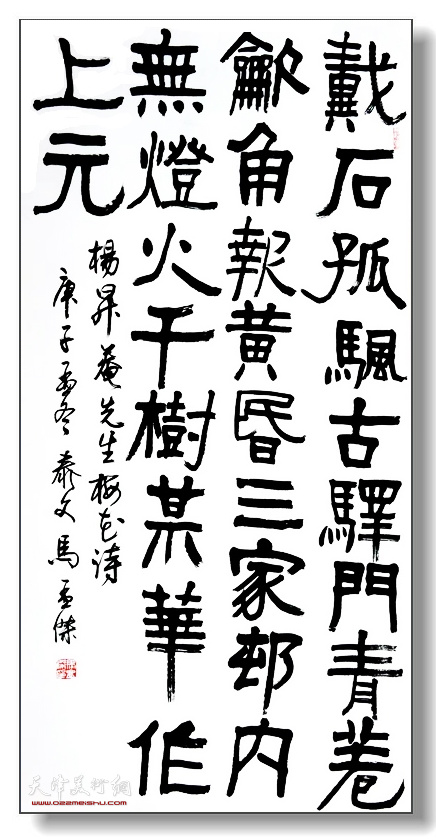 戴石孤颿古驛門青菴
龡角報黃昏三家邨內
無燈火千樹某華作
上元
楊昇菴先生梅花詩
庚子孟冬 文馬孟傑
天津美术网
www.022meishu.com